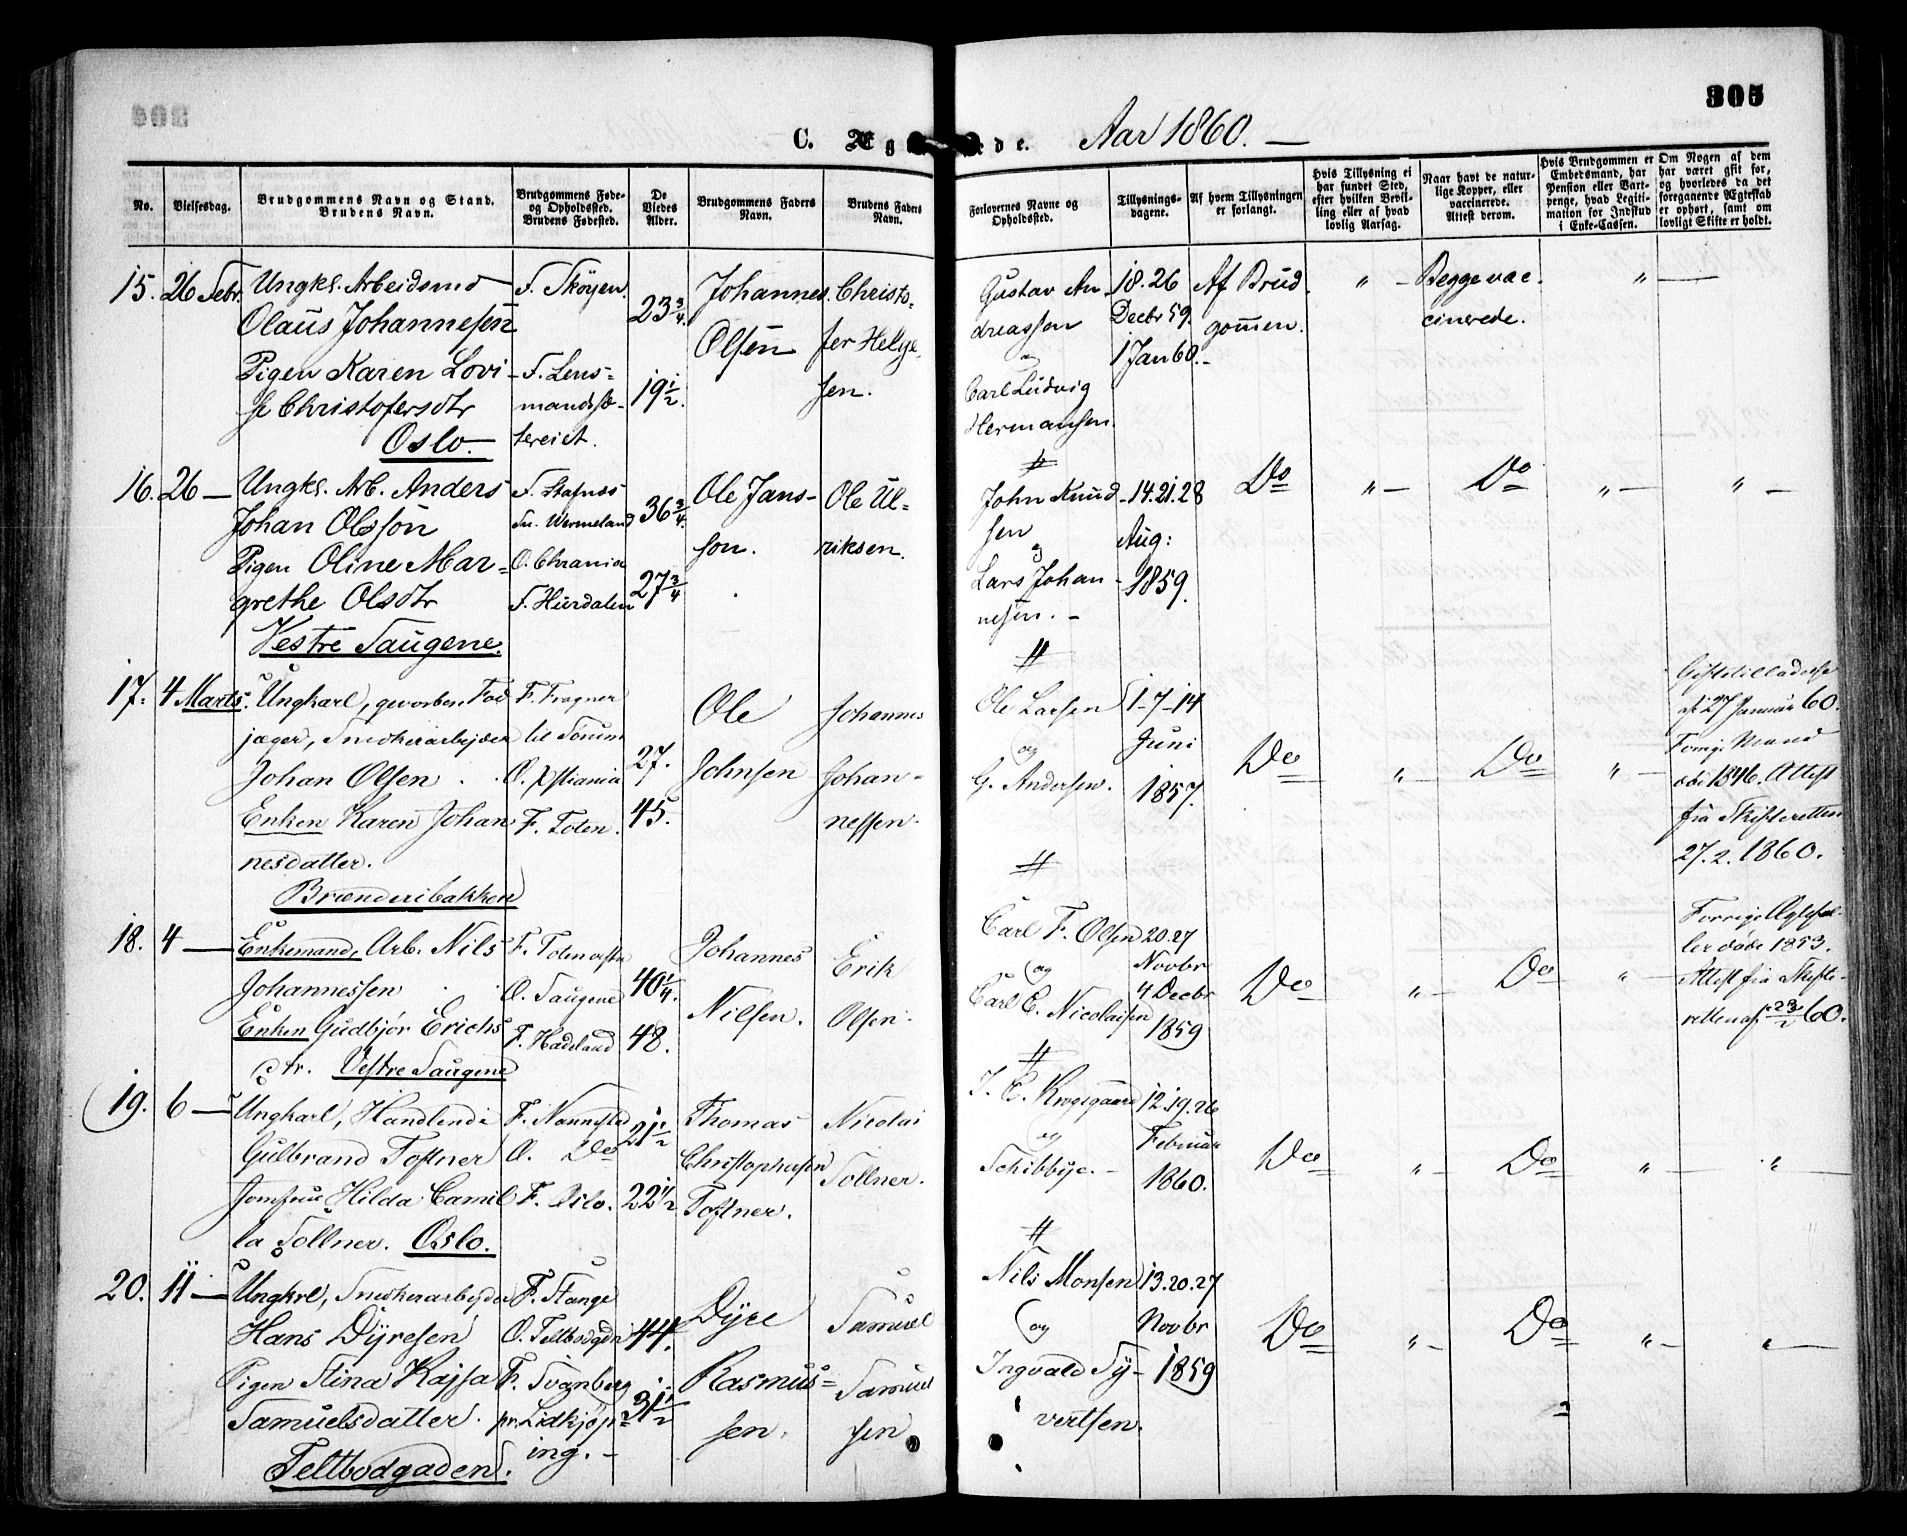 305
C. Æg ede. Aar 1860. —
No.
Vielsesdag.
Brudgommens Navn og Stand.
Brudens Navn.
Brudgommens Føde-
og Opholdssted.
Brudens Fødested.
De
Viedes
Alder.
Brudgommens Faders
Navn.
Brudens Faders
Navn.
Forlovernes Navne og
Opholdssted.
Tillysnings-
dagene.
Af hvem Tillysningen
er forlangt.
Hvis Tillysning ei
har fundet Sted,
efter hvilken Bevil-
ling eller af hvad
lovlig Aarsag.
Naar havt de natur-
lige Kopper, eller
vaccinerede.
Attest derom.
Hvis Brudgommen er
Embedsmand, har
Pension eller Vart-
penge, hvad Legiti-
mation for Indskud
i Enke-Cassen.
Om Nogen af dem
har været gift før,
og hvorledes da det
foregaaende Ægteskab
er ophørt, samt om
lovligt Skifte er holdt.
15. 26 Febr.
Ungkl. Arbeidsmd
Olaus Johannesen
Pigen Karen Lovi-
se Christofersdtr
Oslo.
F. Skøyen.
F. Lens-
mandsæ-
tereiet.
23 3/4.
19 1/2.
Johannes
Olsen
Christo-
fer Helge-
sen.
Gustav An-
dreassen
og
Carl Ludvig
Hermansen.
18. 26
Decbr 59.
1 Jan 60. -
Af Brud
gommen.
" —
Begge vac-
cinerede.
" —
16. 26 —
Ungkl. Arb. Anders
Johan Olsson
Pigen Oline Mar-
grethe Olsdtr
Vestre Gaugene.
F. Stafnæs
Sn. Wermeland
O. Chrania
F. Hurdalen
36 3/4.
27 3/4
Ole Jans-
son.
Ole Ul-
riksen.
John Knud-
sen
og
Lars Johan-
nesen. -
14. 21. 28
Aug:
1859.
Do
" —
Do
" —
" —
17. 4 Marts.
Ungkarl, gevorben Fod
jæger, Snedkerarbejder
Johan Olsen
Enken Karen Johan
nesdatter.
Brænderibakken
F. Frogner
til Sørum
O. Xstiania
F. Toten.
27.
45.
Ole
Johnsen
Johannes
Johan-
nessen.
Ole Larsen
og
G. Andersen.
1-7-14
Juni
1857.
Do
" —
Do
" —
Giftetilladelse
af 27 Januar 60.
Forrige Mand
død 1846. Attest
fra Skifteretten
27. 2. 1860.
18. 4 —
Enkemand, Arb. Nils
Johannessen
Enken Gudbjør Erichs
dtr. Vestre Gaugene
F. Toten
O. Gaugene
F. Hadeland
40 1/4.
48.
Johannes
Nilsen.
Erik
Olsen.
Carl F. Olsen
og
Carl E. Nicolaisen
20. 27
Novbr
4 Decbr
1859
Do
" —
Do
" —
Forrige Ægtefæl-
ler døde 1853.
Attest fra Skifte-
retten af 23/2 60.
19. 6 —
Ungkarl, Handlende
Gulbrand Toftner
Jomfru Hilda Camil
la Tollner. Oslo.
F. Nannestad
O. Do
F. Oslo.
21 1/2
22 1/2
Thomas
Christophersen
Toftner.
Nicolai
Tollner.
J. C. Krogsgaard
og
Schibbye. -
12. 19. 26
Februar
1860.
Do
" —
Do
" —
" —
20. 11 —
Ungkrl, Snedkerarbejder
Hans Dyresen
Pigen Stina Kajsa
Samuelsdatter.
Teltbodgaden.
F. Stange
O. Teltbodgdn
F. Svanberg
pr. Lidkjøp-
ing. -
44.
31 1/2
Dyre
Rasmus-
sen.
Samuel
Samuel
sen
Nils Monsen
og
Ingvald Sy-
vertsen.
13. 20. 27
Novbr
1859
Do
" —
Do
" —
" —